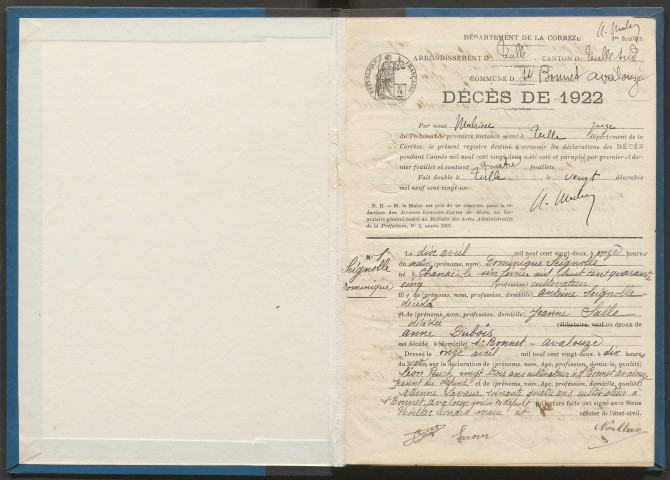 DÉPARTEMENT DE LA CORRÈZE
1er feuillet.
ARRONDISSEMENT D Tulle - CANTON D Tulle Sud
COMMUNE D St Bonnet avalouze
RÉPUBLIQUE FRANÇAISE
DÉCÈS DE 1922
Par nous, juge
du Tribunal de première instance séant à Tulle département de la
Corrèze, le présent registre destiné à recevoir les déclarations des DÉCÈS
pendant l'année mil neuf cent vingt-deux a été coté et paraphé par premier et der-
nier feuillet et contient quatre feuillets.
Fait double à Tulle le vingt décembre
mil neuf cent vingt-un.
N. B. — M. le Maire est prié de se reporter, pour la ré-
daction des diverses formules d'actes de décès, au for-
mulaire général inséré au Bulletin des Actes Administratifs
de la Préfecture, N° 2, année
N° 1
Seignolle
Dominique
Le dix avril mil neuf cent vingt-deux, à onze heures
du matin (prénoms, nom) Dominique Seignolle
né à Chanac le six février mil huit cent quarante
cinq (profession) cultivateur
fil s de (prénoms, nom, profession, domicile) Antoine Seignolle
décédé
et de (prénoms, nom, profession, domicile) Jeanne Salle
décédée célibataire, veuf ou époux de
anne Dubois
est décédé à (domicile) St Bonnet - avalouze
Dressé le onze avril mil neuf cent vingt-deux, à dix heures
du matin sur la déclaration de (prénoms, nom, âge, profession, domicile, qualité)
Léon vingt trois ans cultivateur à St Bonnet avalouze
parent du défunt et de (prénoms, nom, âge, profession, domicile, qualité)
Etienne Lavaur soixante quatre ans cultivateur à
St Bonnet avalouze du défunt lecture faite ont signé avec Nous
Noillac Léonard maire officier de l'état-civil.
Noillac